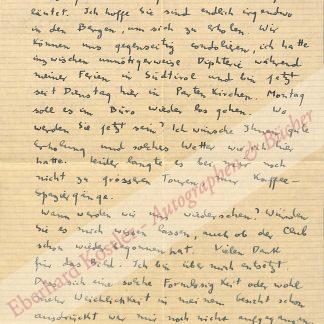 läutet. Ich hoffe Sie sind endlich irgendwo
in den Bergen, um sich zu erholen. Wir
können uns gegenseitig condolieren, ich hatte
inzwischen unnötigerweise Diphterie während
meiner Ferien in Südtirol und bin jetzt
seit Dienstag hier in Partenkirchen. Montag
soll es im Büro wieder los gehen. Wo
werden Sie jetzt sein? Ich wünsche Ihnen gute
Erholung und solches Wetter wie ich hier
hatte. Leider langte es bei mir noch
nicht zu grösseren Touren, nur Kaffee-
spaziergänge.
Wann werden wir uns wiedersehen? Würden
Sie es mich wissen lassen, auch ob der Club
schon wieder begonnen hat. Vielen Dank
für das Bild. Ich bin über mich entsetzt.
Dass sich eine solche Formlosigkeit oder wohl
mehr Weichlichkeit in meinem Gesicht schon
ausdrückt war mir noch nicht aufgegangen
Eberhard Köstler Autographen & Bücher